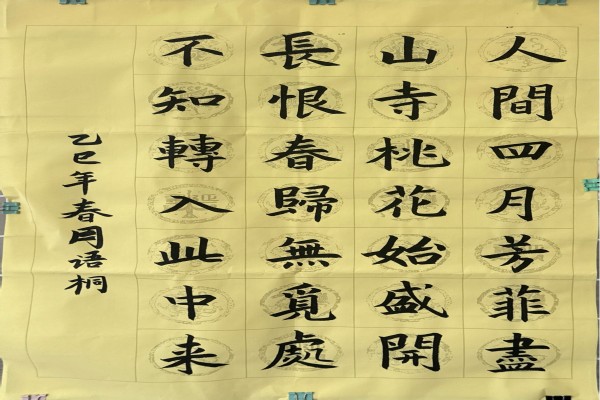 人間四月芳菲盡
山寺桃花始盛開
長恨春歸無覓處
不知轉入此中来
乙巳年春周语桐